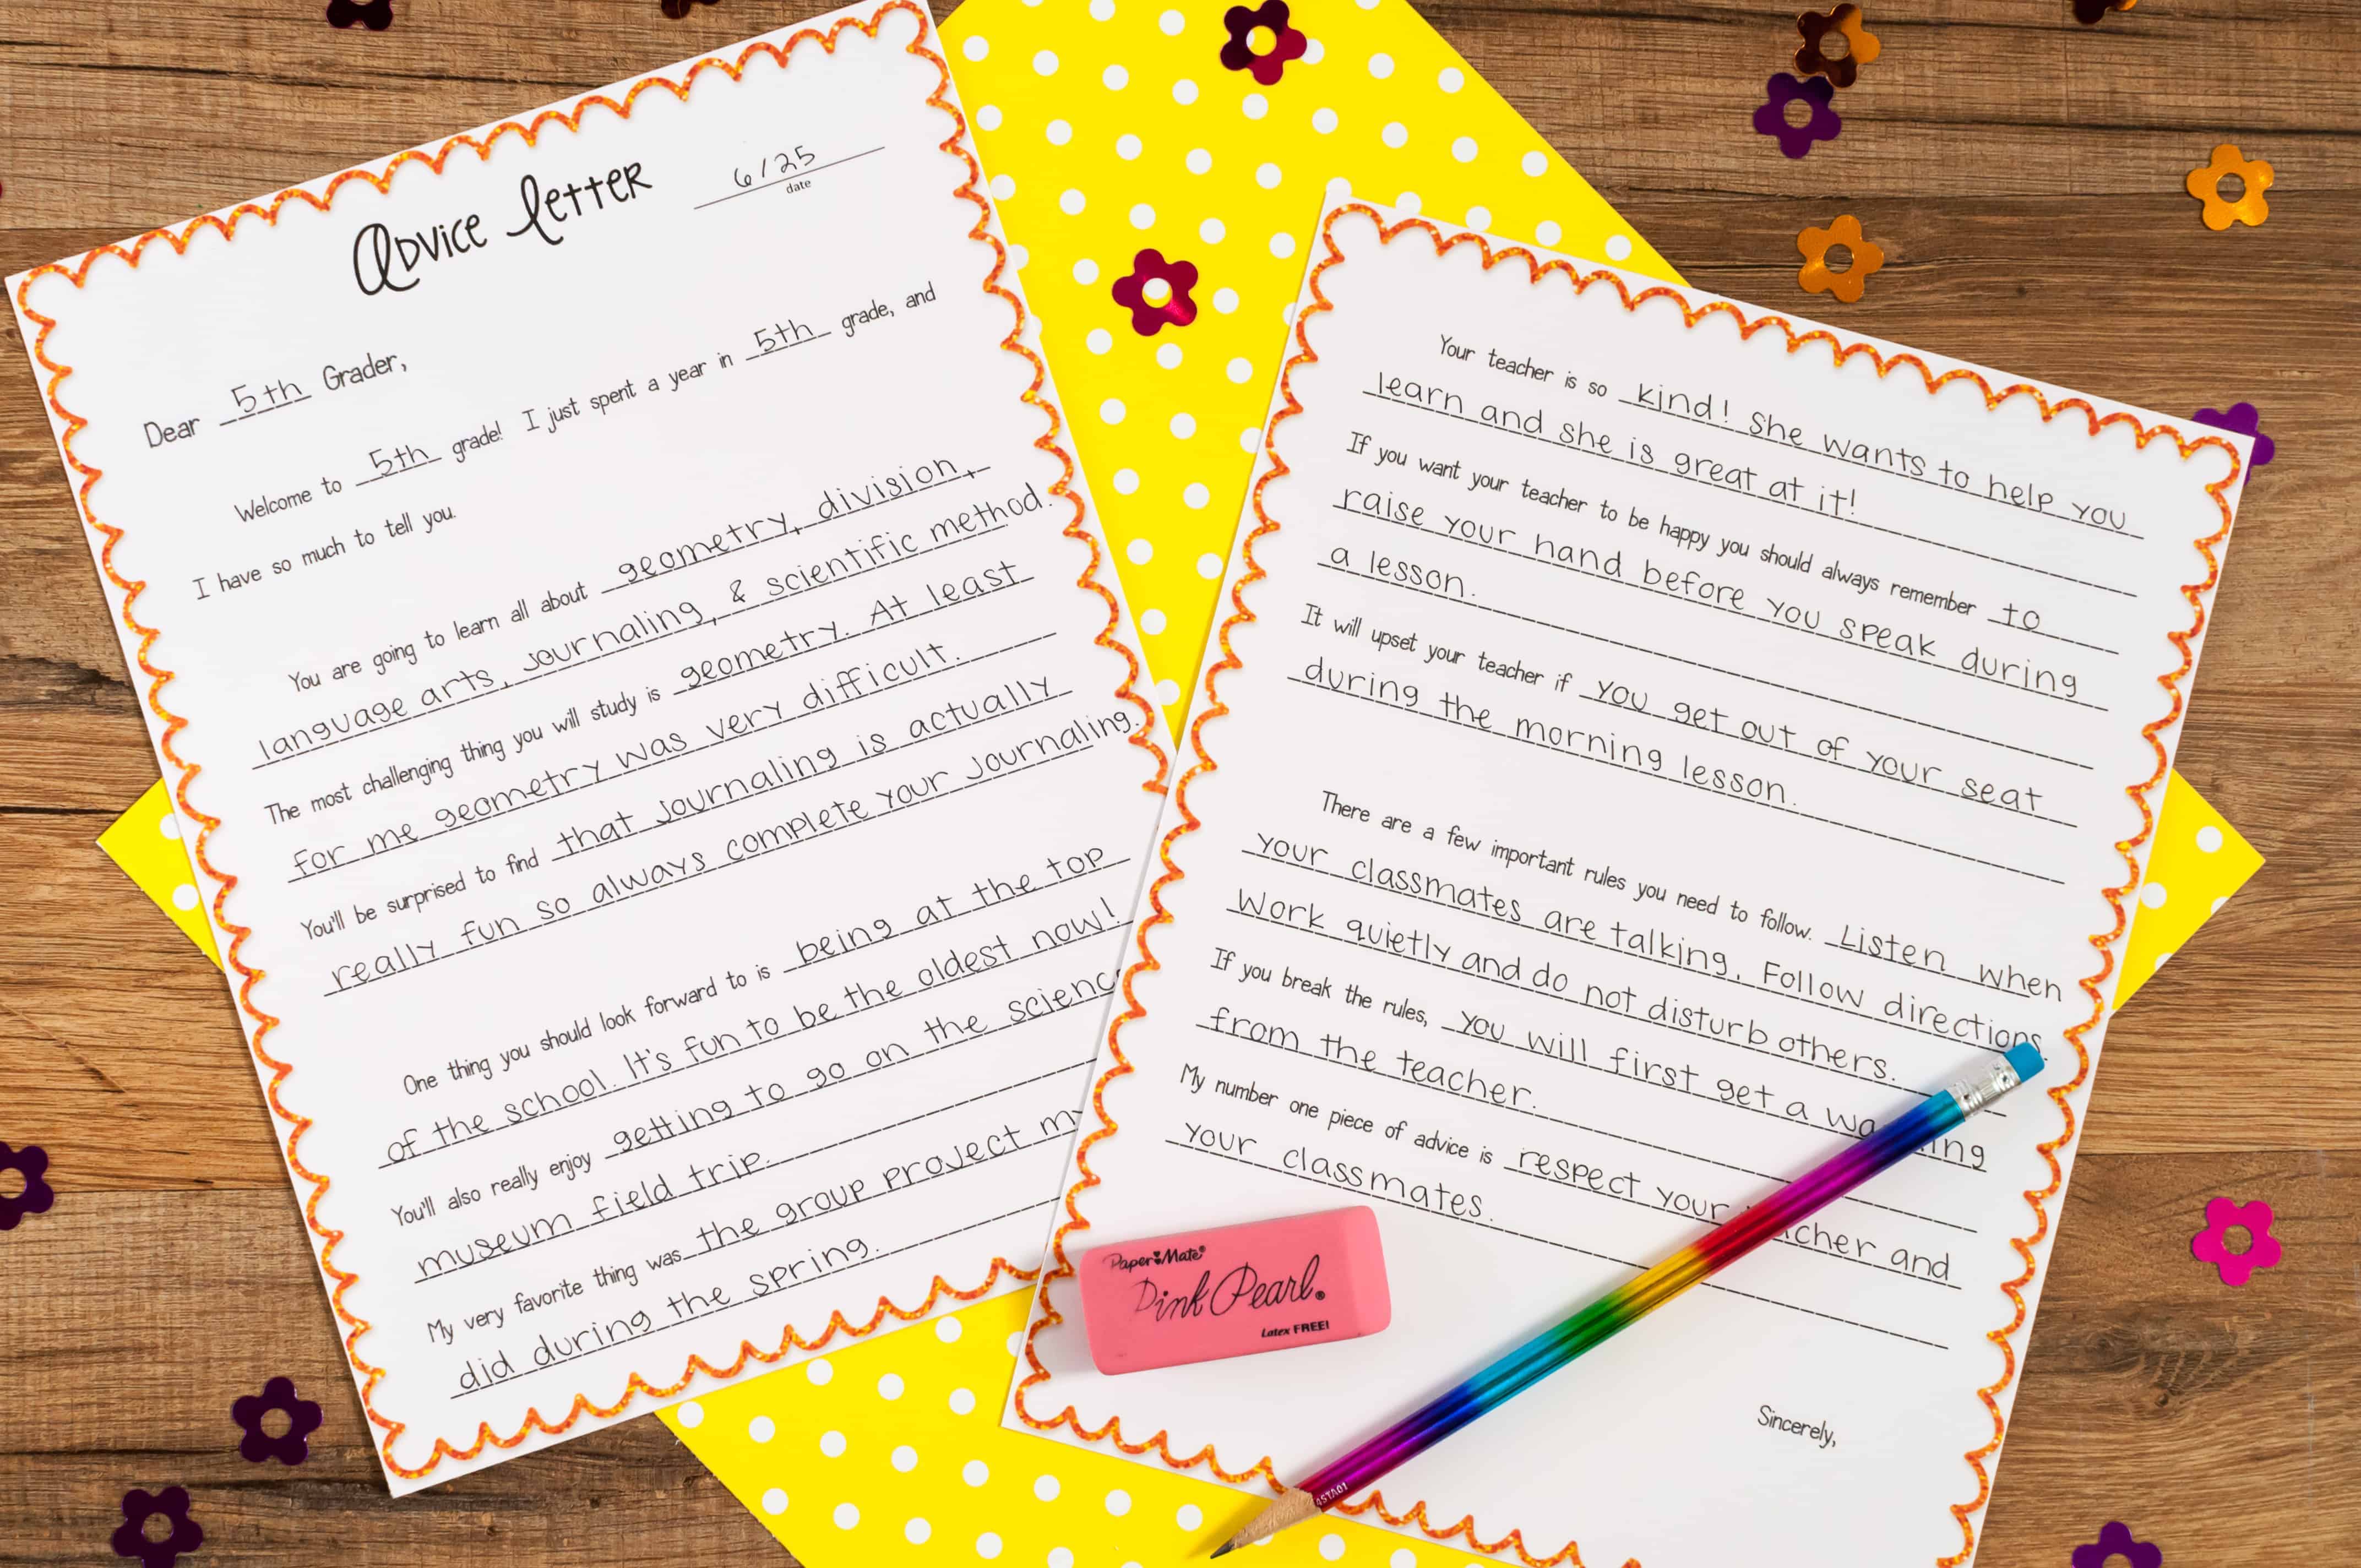 Advice Letter
6/25
date
Dear 5th Grader,
Welcome to 5th grade! I just spent a year in 5th grade, and
I have so much to tell you.
You are going to learn all about geometry, division,
language arts, journaling, & scientific method.
The most challenging thing you will study is geometry. At least
for me geometry was very difficult.
You'll be surprised to find that journaling is actually
really fun so always complete your journaling.
One thing you should look forward to is being at the top
of the school. It's fun to be the oldest now!
You'll also really enjoy getting to go on the scienc
museum field trip.
My very favorite thing was the group project
did during the spring.
Your teacher is so kind! She wants to help you
learn and she is great at it!
If you want your teacher to be happy you should always remember to
raise your hand before you speak during
a lesson.
It will upset your teacher if you get out of your seat
during the morning lesson.
There are a few important rules you need to follow. Listen when
your classmates are talking. Follow directions.
Work quietly and do not disturb others.
If you break the rules, you will first get a wa ing
from the teacher.
My number one piece of advice is respect your cher and
your classmates.
Sincerely,
Paper Mate®
Pink Pearl®
Latex FREE!